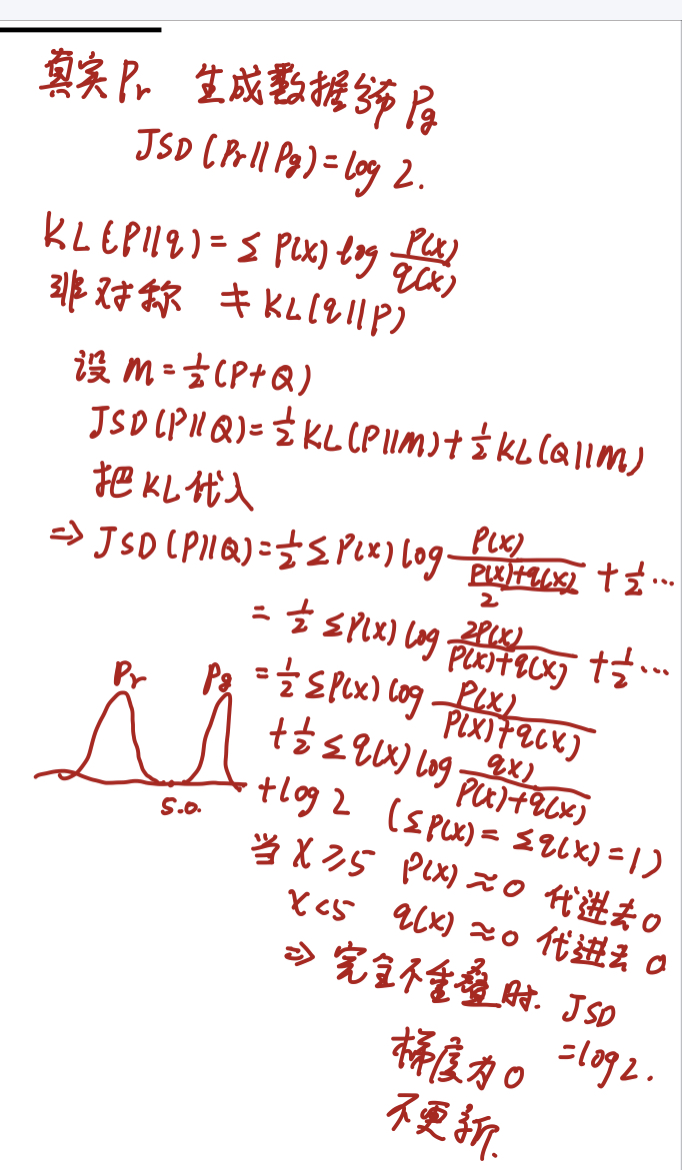 真实 Pr 生成数据分布 Pg
JSD(Pr||Pg)=log 2.
KL(P||q)=Σ P(x) log P(x)/q(x)
非对称 ≠ KL(q||p)
设 m=½(P+Q)
JSD(P||Q)=½KL(P||m)+½KL(Q||m)
把 KL 代入
⇒ JSD(P||Q)=½ΣP(x) log P(x)/((P(x)+q(x))/2) +½...
=½ΣP(x) log 2P(x)/(P(x)+q(x)) +½...
=½ΣP(x) log P(x)/(P(x)+q(x))
+½Σq(x) log q(x)/(P(x)+q(x))
+log 2 (ΣP(x)=Σq(x)=1)
Pr Pg
5.0.
当 X≥5 P(x)≈0 代进去0
X<5 q(x)≈0 代进去0
⇒ 完全不重叠时. JSD
=log2.
梯度为0
不更新.